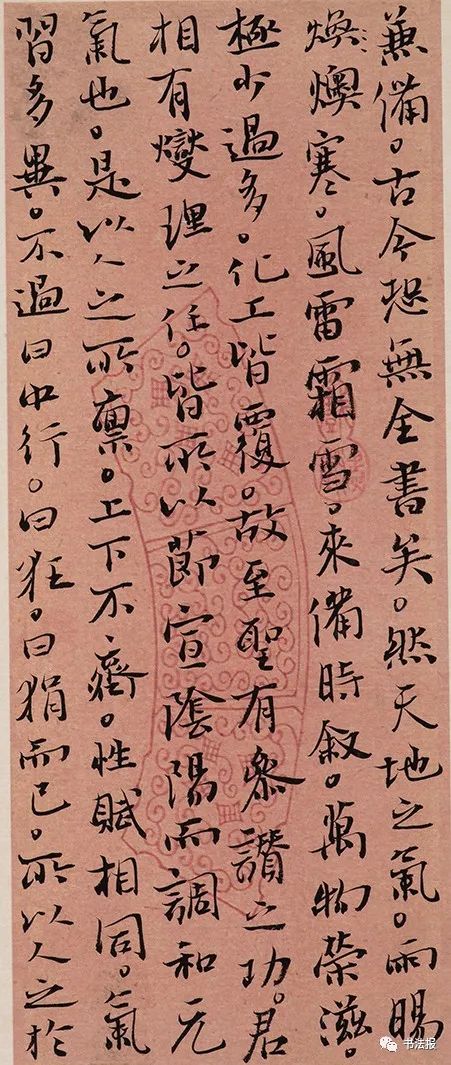 兼備。古今恐無全書矣。然天地之氣。雨暘
煥燠寒。風雷霜雪。來備時敘。萬物榮滋。
極少過多。化工皆覆。故至聖有叅讚之功。君
相有燮理之任。皆所以節宣陰陽而調和元
氣也。是以人之所禀。上下不齊。性賦相同。氣
習多異。不過曰中行。曰狂。曰狷而已。所以人之於
书法报